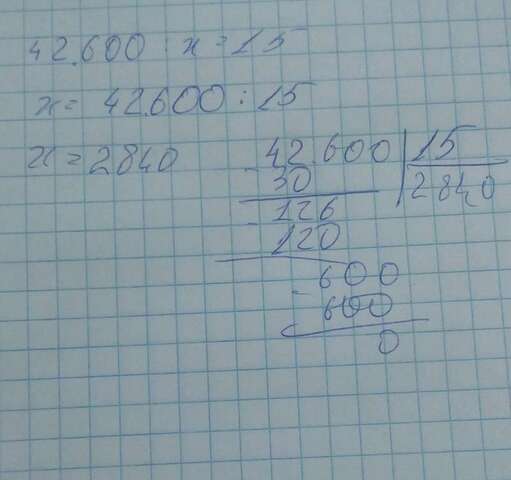 42.600 : x = 15
x = 42.600 : 15
x = 2840
42.600 | 15
- 30 | 2840
- 126
120
- 600
600
0